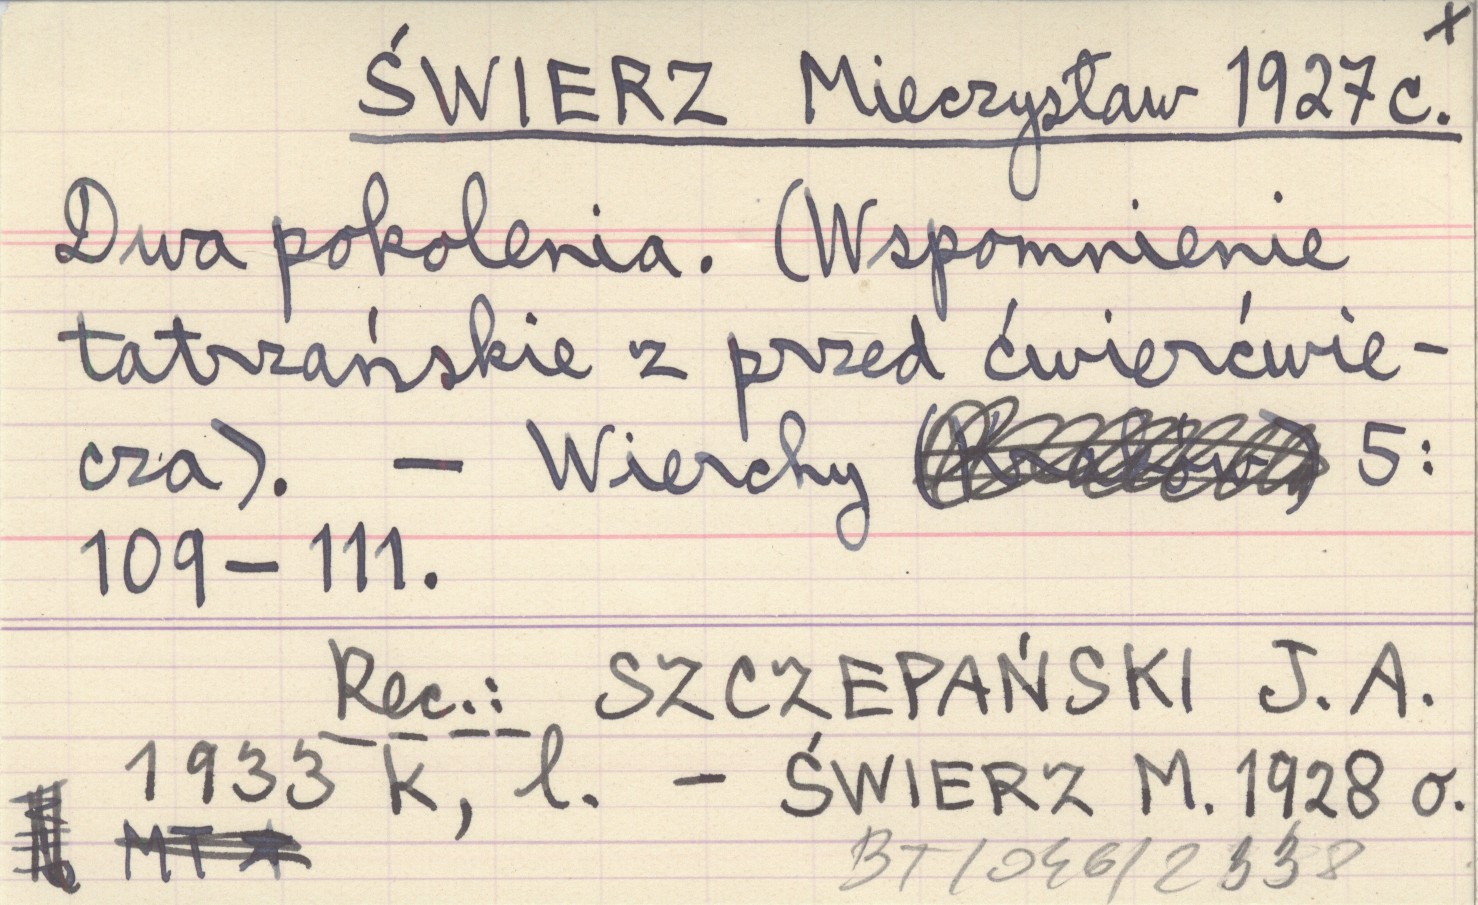 x
ŚWIERZ Mieczysław 1927 c.
Dwa pokolenia. (Wspomnienie
tatrzańskie z przed ćwierćwie-
cza). – Wierchy 5:
109–111.
Rec.: SZCZEPAŃSKI J. A.
1933 k, l. – ŚWIERZ M. 1928 o.
MT
BT/046/2338